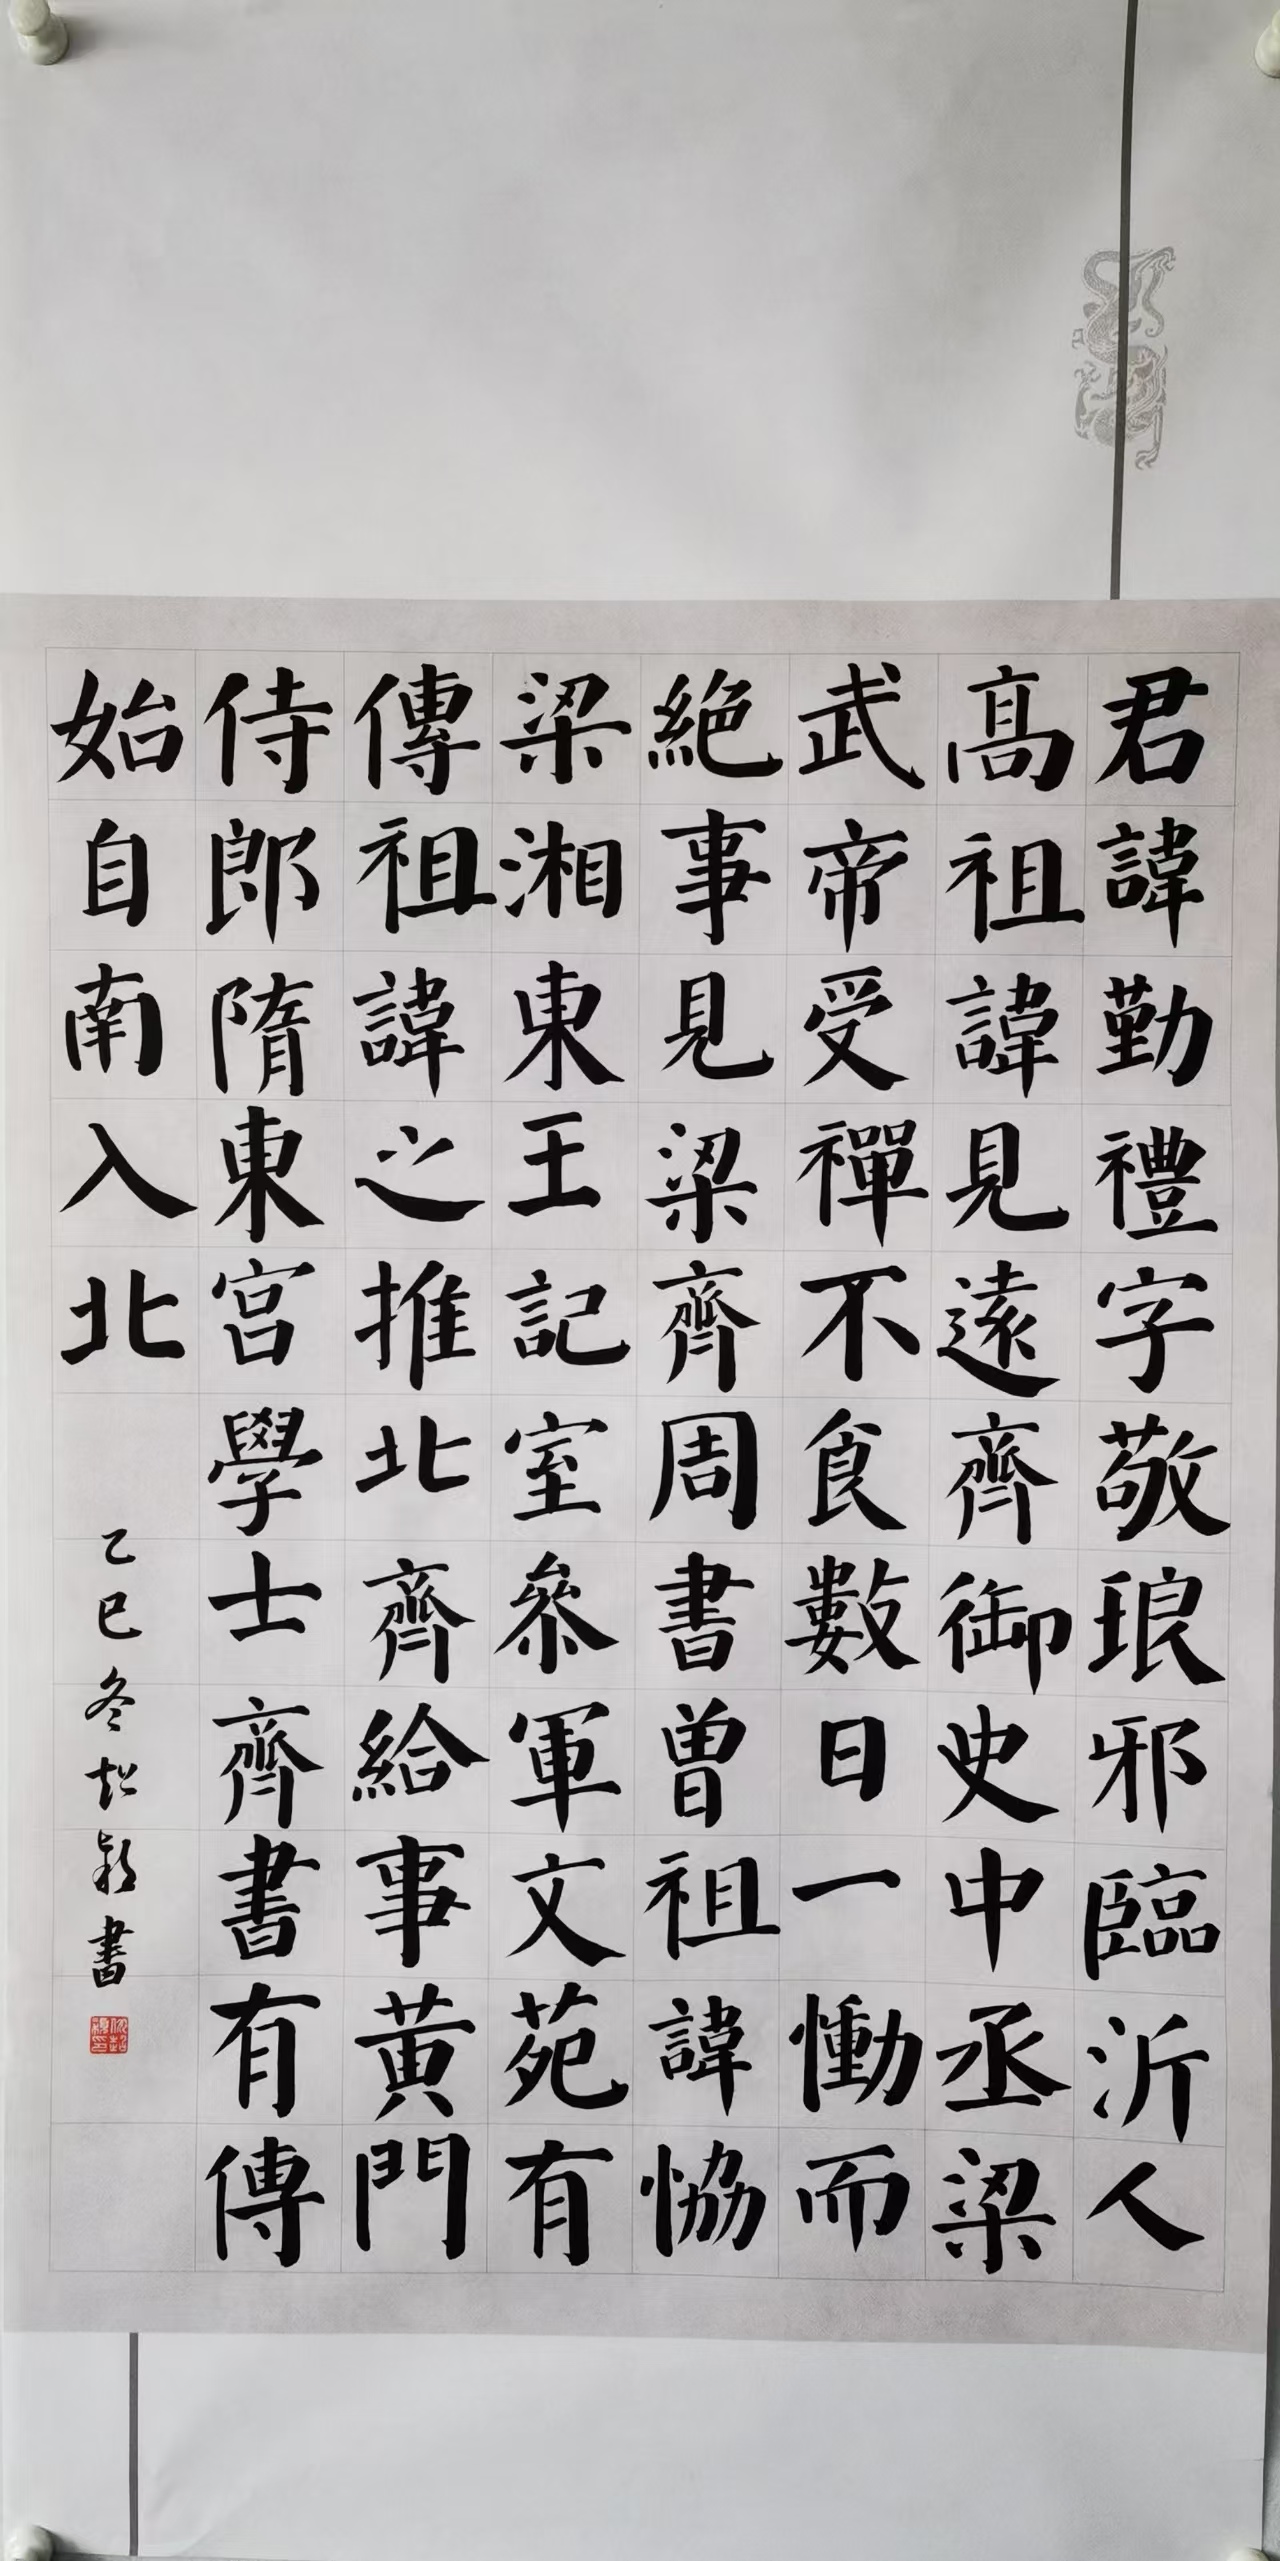 君諱勤禮字敬琅邪臨沂人
高祖諱見遠齊御史中丞梁
武帝受禪不食數日一慟而
絶事見梁齊周書曾祖諱恊
梁湘東王記室參軍文苑有
傳祖諱之推北齊給事黄門
侍郎隋東宫學士齊書有傳
始自南入北
乙巳冬 書